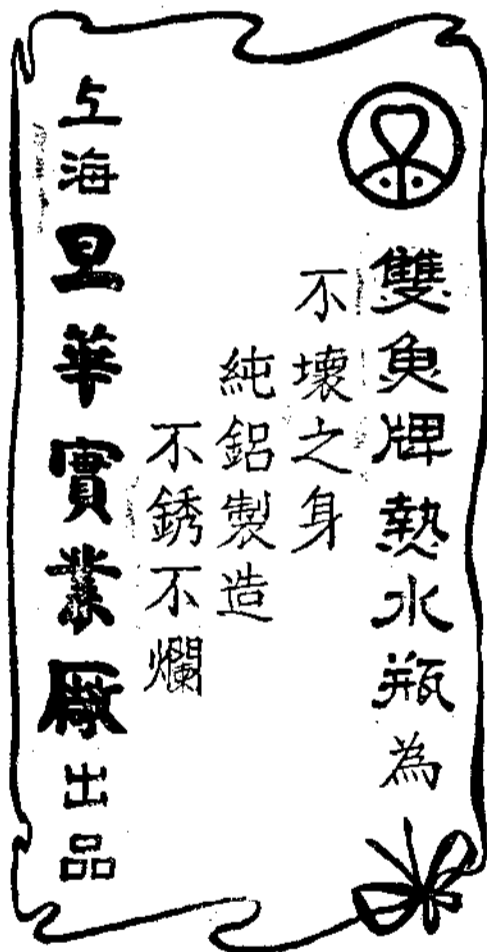 雙魚牌熱水瓶為
不壞之身
純鋁製造
不銹不爛
上海旦華實業廠出品